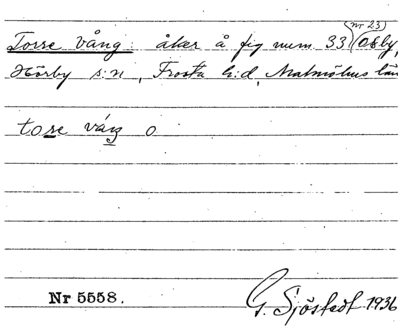 (nr 23)
Torse vång: åker å fig num 33 (Osby,
Hörby s:n, Frosta h:d, Malmöhus län
tose våŋ o
Nr 5558.
G. Sjöstedt 1936